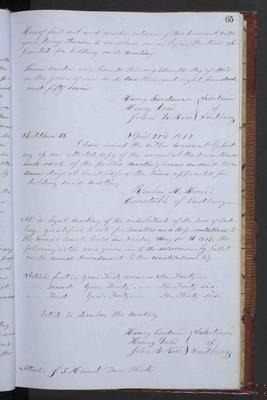 65
Hereof fail not and make return of this warrant with
your doing thereon to ourselves on or before the time ap-
pointed for holding said meeting
Given under our hands this eighteenth day of April
in the year of our Lord one thousand eight hundred
and fifty seven
Henry Selectmen
Henry of
John W. Rice Sudbury
Middlesex SS. April 1857
I have served the within warrant by post-
ing up an attested copy of the same at the Town House
and each of the Public Meeting houses in said town
seven days at least before the time appointed for
holding said meeting
Reuben H.
Constable of Sudbury
At a legal meeting of the inhabitants of the town of Sud-
bury qualified to vote for Senators and Representatives to
the General Court held on Friday May 1st 1857 the
following votes were given in to the Selectmen by ballot
on the several Amendments to the constitution viz
Article first Yeas Thirty Nays
Second Yeas Thirty Nays Thirty six
Third Yeas Thirty Nays Thirty six
Voted to dissolve the meeting
Henry Selectmen
Henry of
John W. Rice Sudbury
Attest J. S. Hunt Town Clerk